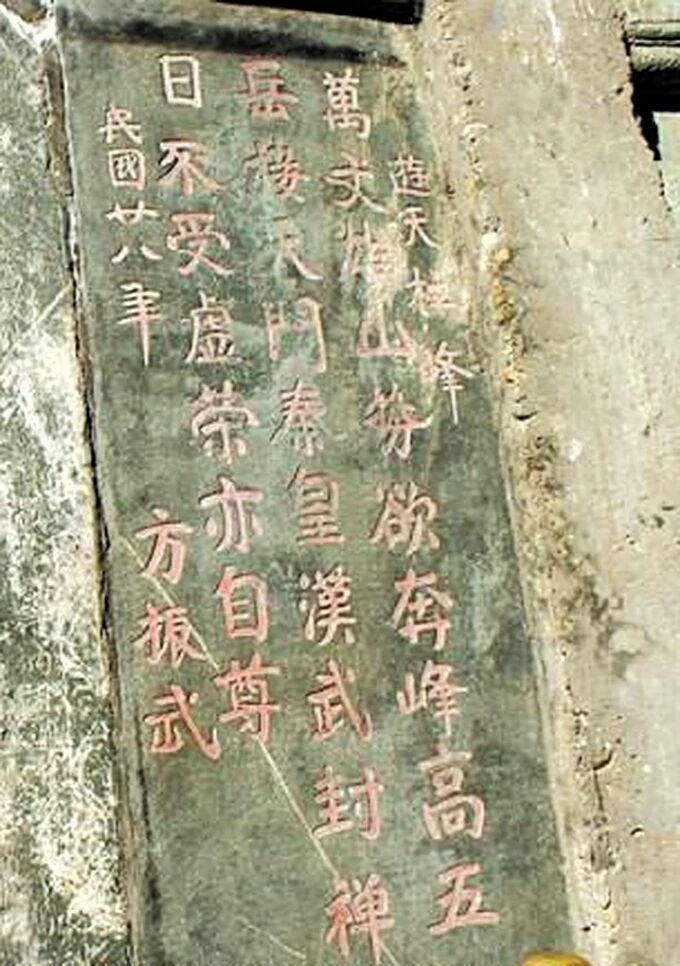 遊天柱峰
萬丈雄山势欲奔峰高五
岳接天門秦皇漢武封禅
日不受虛荣亦自尊
民國廿八年
方振武